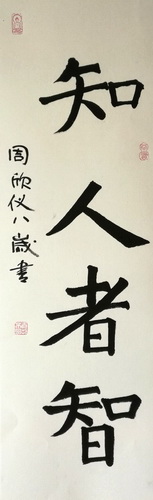 知人者智
周欣仪八岁书